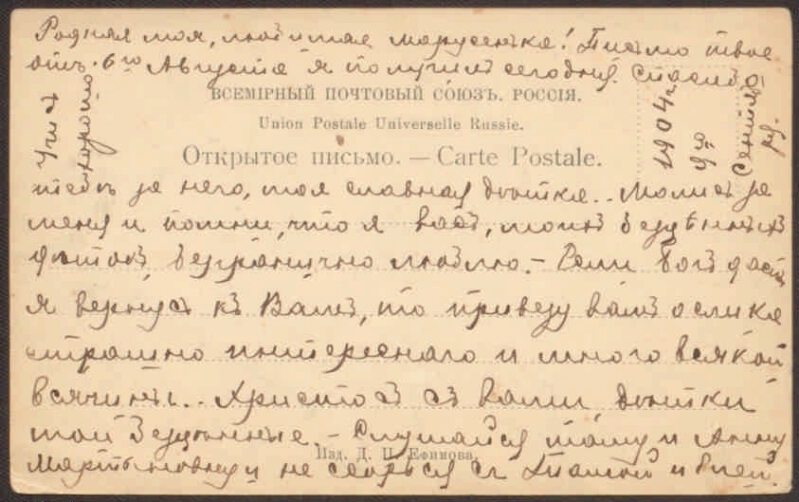 Родная моя, любимая Марусенька! Письмо твое
отъ 6го Августа я получилъ сегодня. Спасибо
ВСЕМІРНЫЙ ПОЧТОВЫЙ СОЮЗЪ. РОССІЯ.
Union Postale Universelle Russie.
Открытое письмо. — Carte Postale.
Учись хорошо
1904 г.
9го Сентября
тебѣ за него, моя славная дѣтка.. Молись за
меня и помни, что я васъ, моихъ
дѣтокъ, безгранично люблю. — Если Богъ дастъ
я вернусь къ Вамъ, то привезу вамъ ослика
страшно интереснаго и много всякой
всячины.. Христосъ съ вами дѣтки
мои. — Слушайся маму и Анну
Изд. Д. П. Ефимова.
Мартыновну и не ссорься съ и